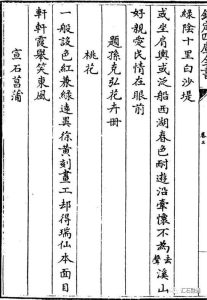 欽定四庫全書
卷三
綠陰十里白沙堤
或坐肩輿或泛船西湖春色耐遊沿牽懷不為去聲溪山
好親愛民情在眼前
題孫克弘花卉冊
桃花
一般設色紅兼綠遠異徐黃刻畫工却得瑞仙本面目
軒軒霞舉笑東風
宣石菖蒲